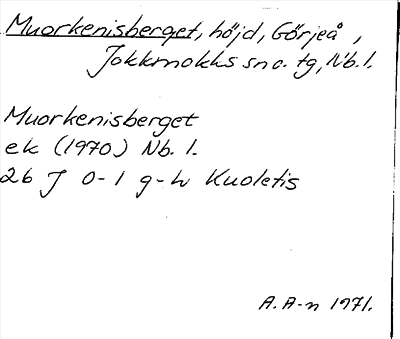 Muorkenisberget, höjd, Görjeå,
Jokkmokks sn o. tg, Nb. l.
Muorkenisberget
ek (1970) Nb. l.
26 J 0-1 g-h Kuoletis
A. A-n 1971.